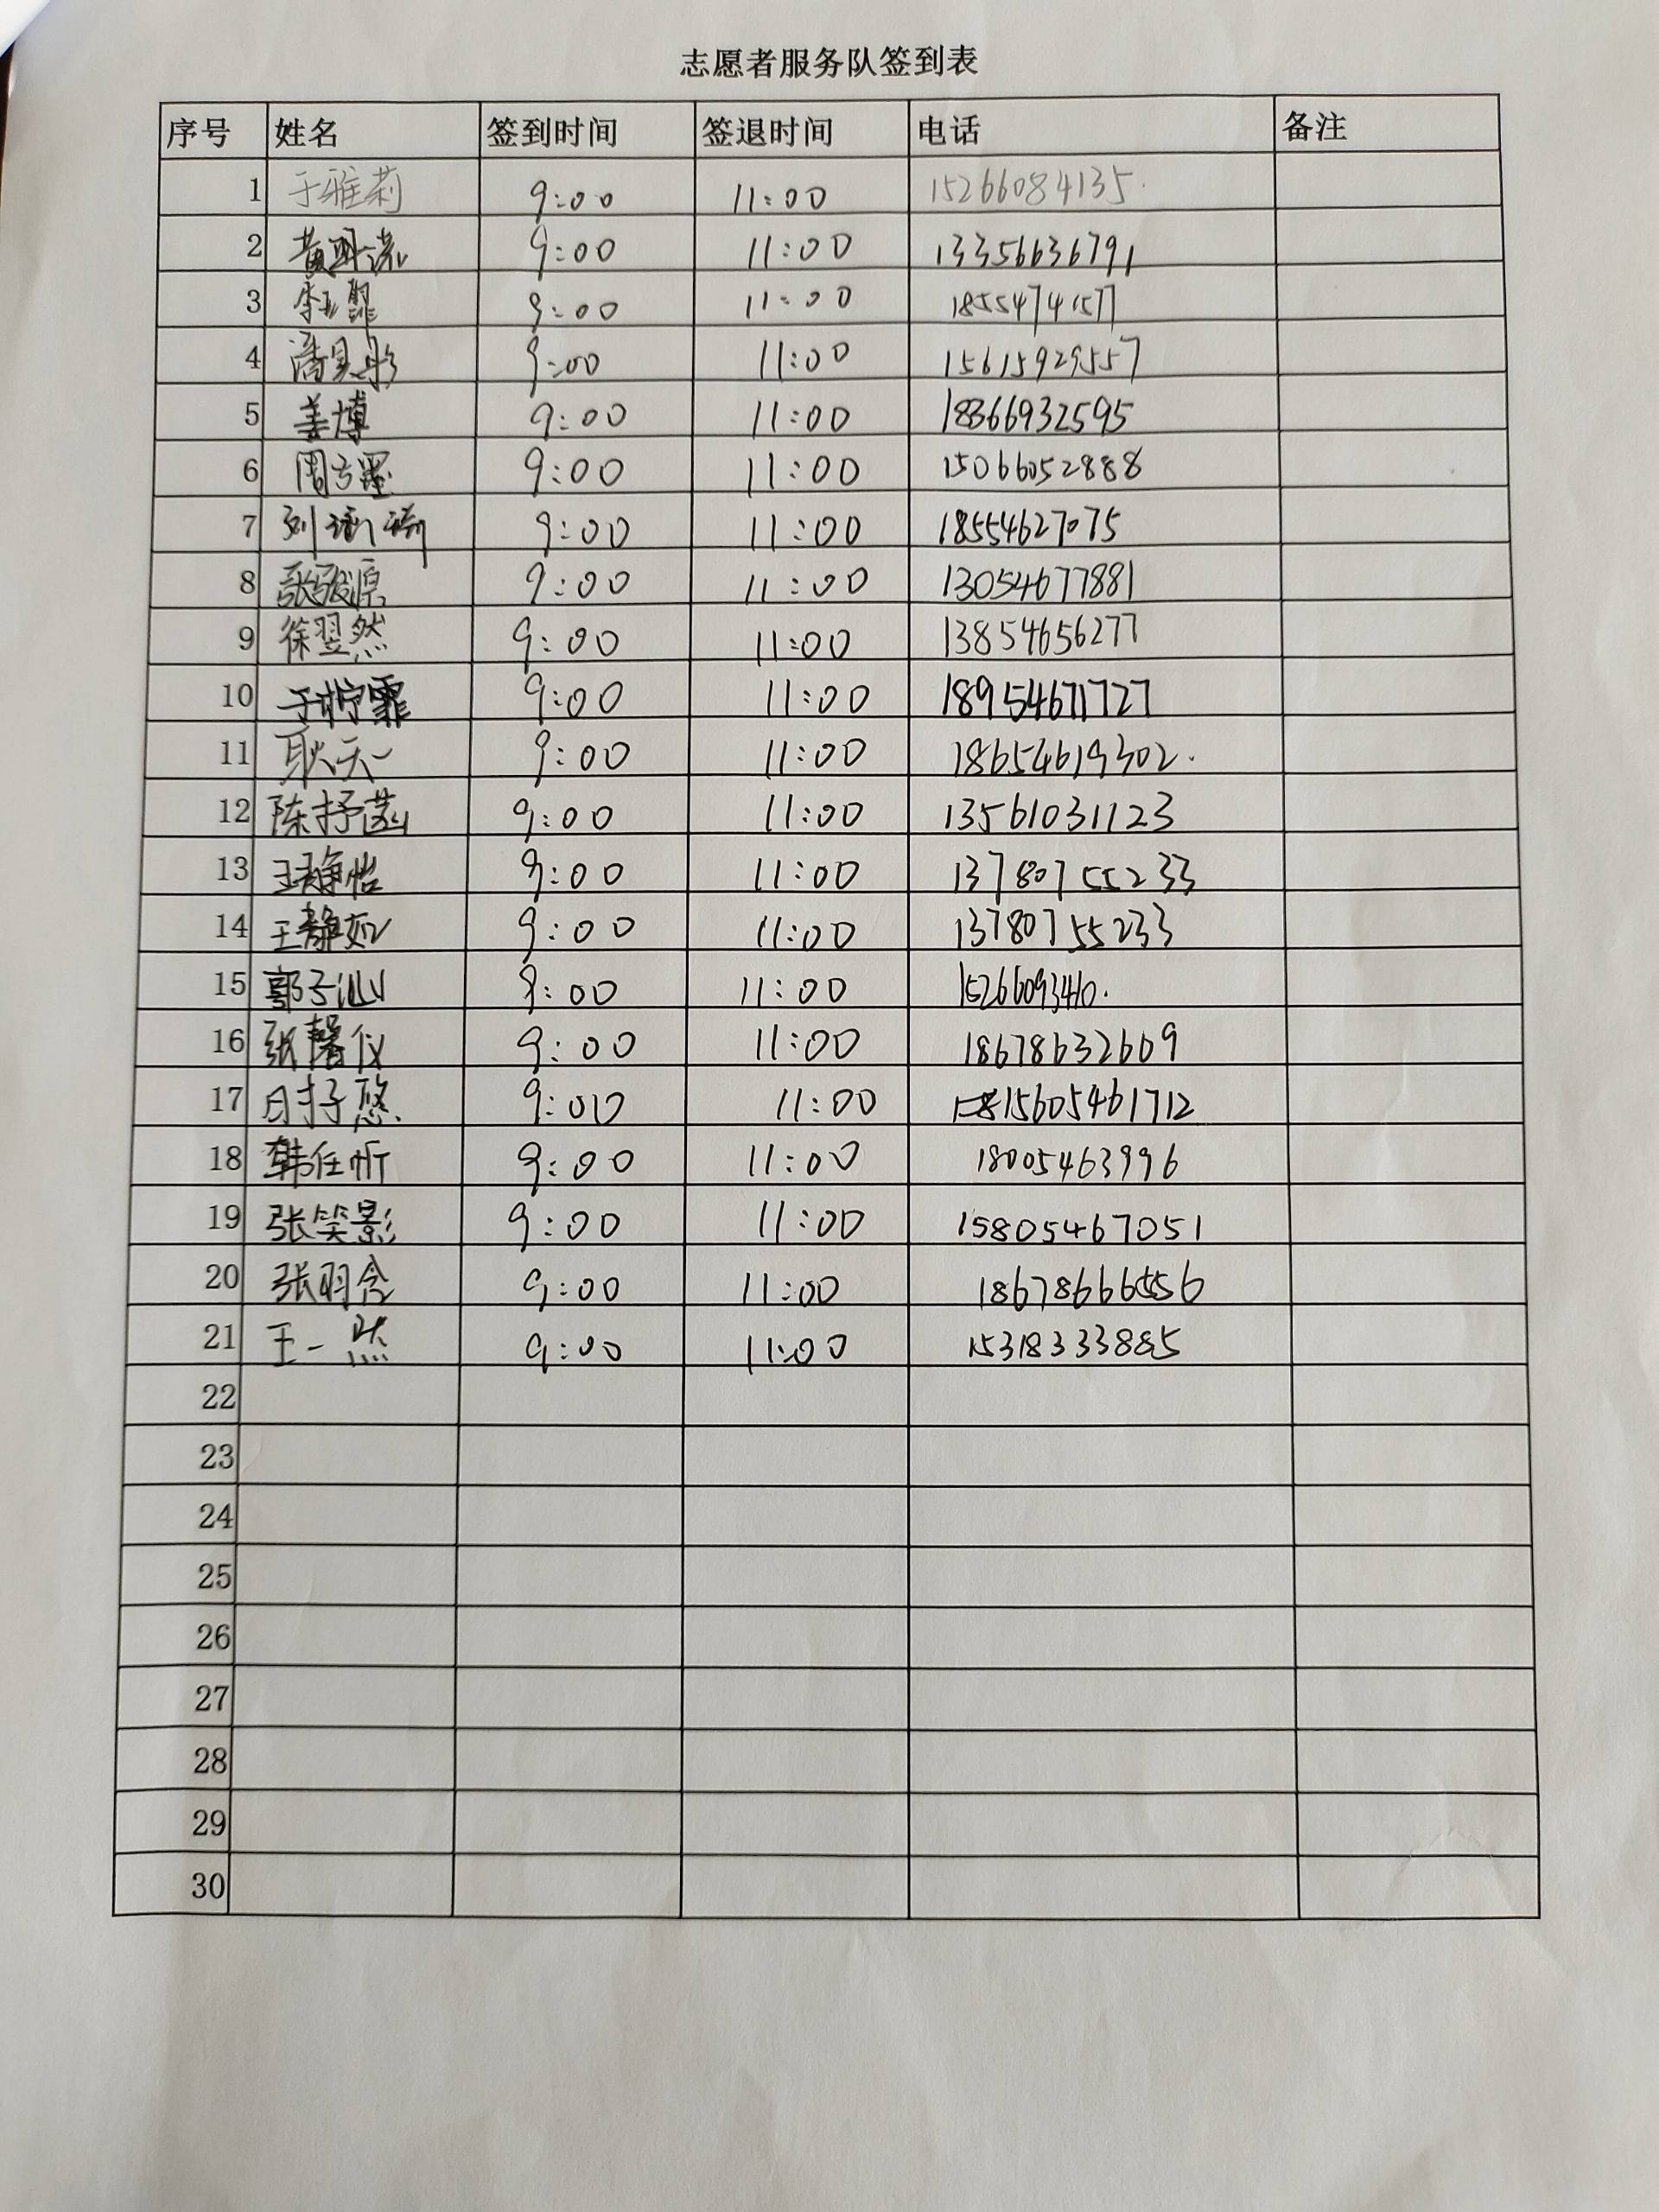 志愿者服务队签到表
序号 姓名 签到时间 签退时间 电话 备注
1 于雅莉 9:00 11:00 15266084135.
2 黄 9:00 11:00 13356636791
3 李 9:00 11:00 18554741577
4 潘昊彤 9:00 11:00 15615929557
5 姜博 9:00 11:00 18366932595
6 周方墨 9:00 11:00 15066052888
7 刘 9:00 11:00 18554627075
8 张骏源 9:00 11:00 13054677881
9 徐翌然 9:00 11:00 13854656277
10 于柠霏 9:00 11:00 18954671727
11 耿天一 9:00 11:00 18654619302.
12 陈抒菡 9:00 11:00 13561031123
13 王静怡 9:00 11:00 13780755233
14 王静如 9:00 11:00 13780755233
15 郭子汕 9:00 11:00 15266093410.
16 张馨仪 9:00 11:00 18678632609
17 9:00 11:00 15605461712
18 韩任忻 9:00 11:00 18005463996
19 张笑影 9:00 11:00 15805467051
20 张羽含 9:00 11:00 18678666556
21 王一然 9:00 11:00 15318333885
22
23
24
25
26
27
28
29
30